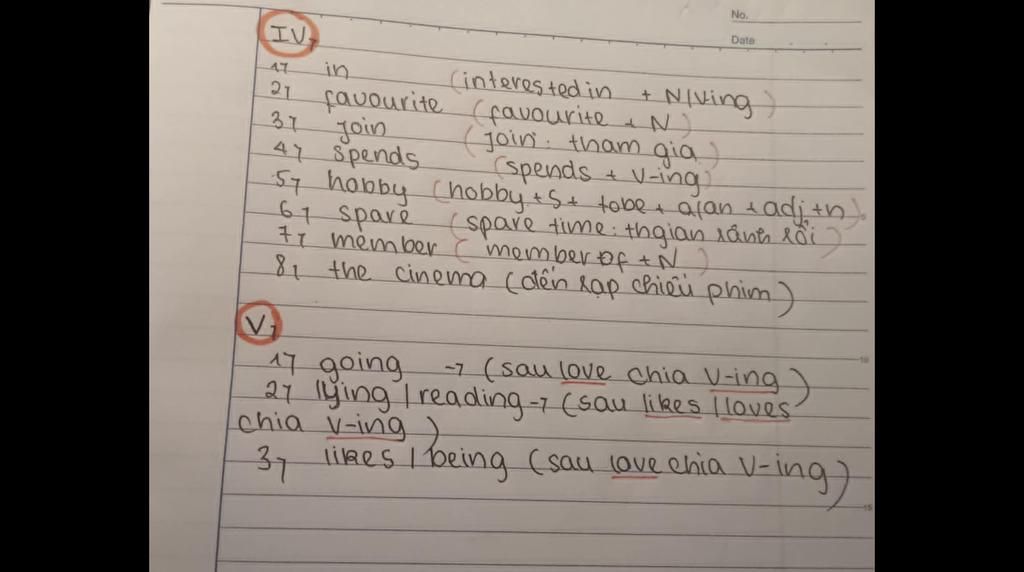 No.
Date
IV,
1, in (interested in + N/Ving)
2, favourite (favourite + N)
3, join (join: tham gia)
4, spends (spends + V-ing)
5, hobby (hobby + S + tobe + a/an + adj + n).
6, spare (spare time: thgian rảnh rỗi)
7, member (member of + N)
8, the cinema (đến rạp chiếu phim)
V,
1, going → (sau love chia V-ing)
2, lying / reading → (sau likes / loves
chia V-ing)
3, likes / being (sau love chia V-ing)
10
15